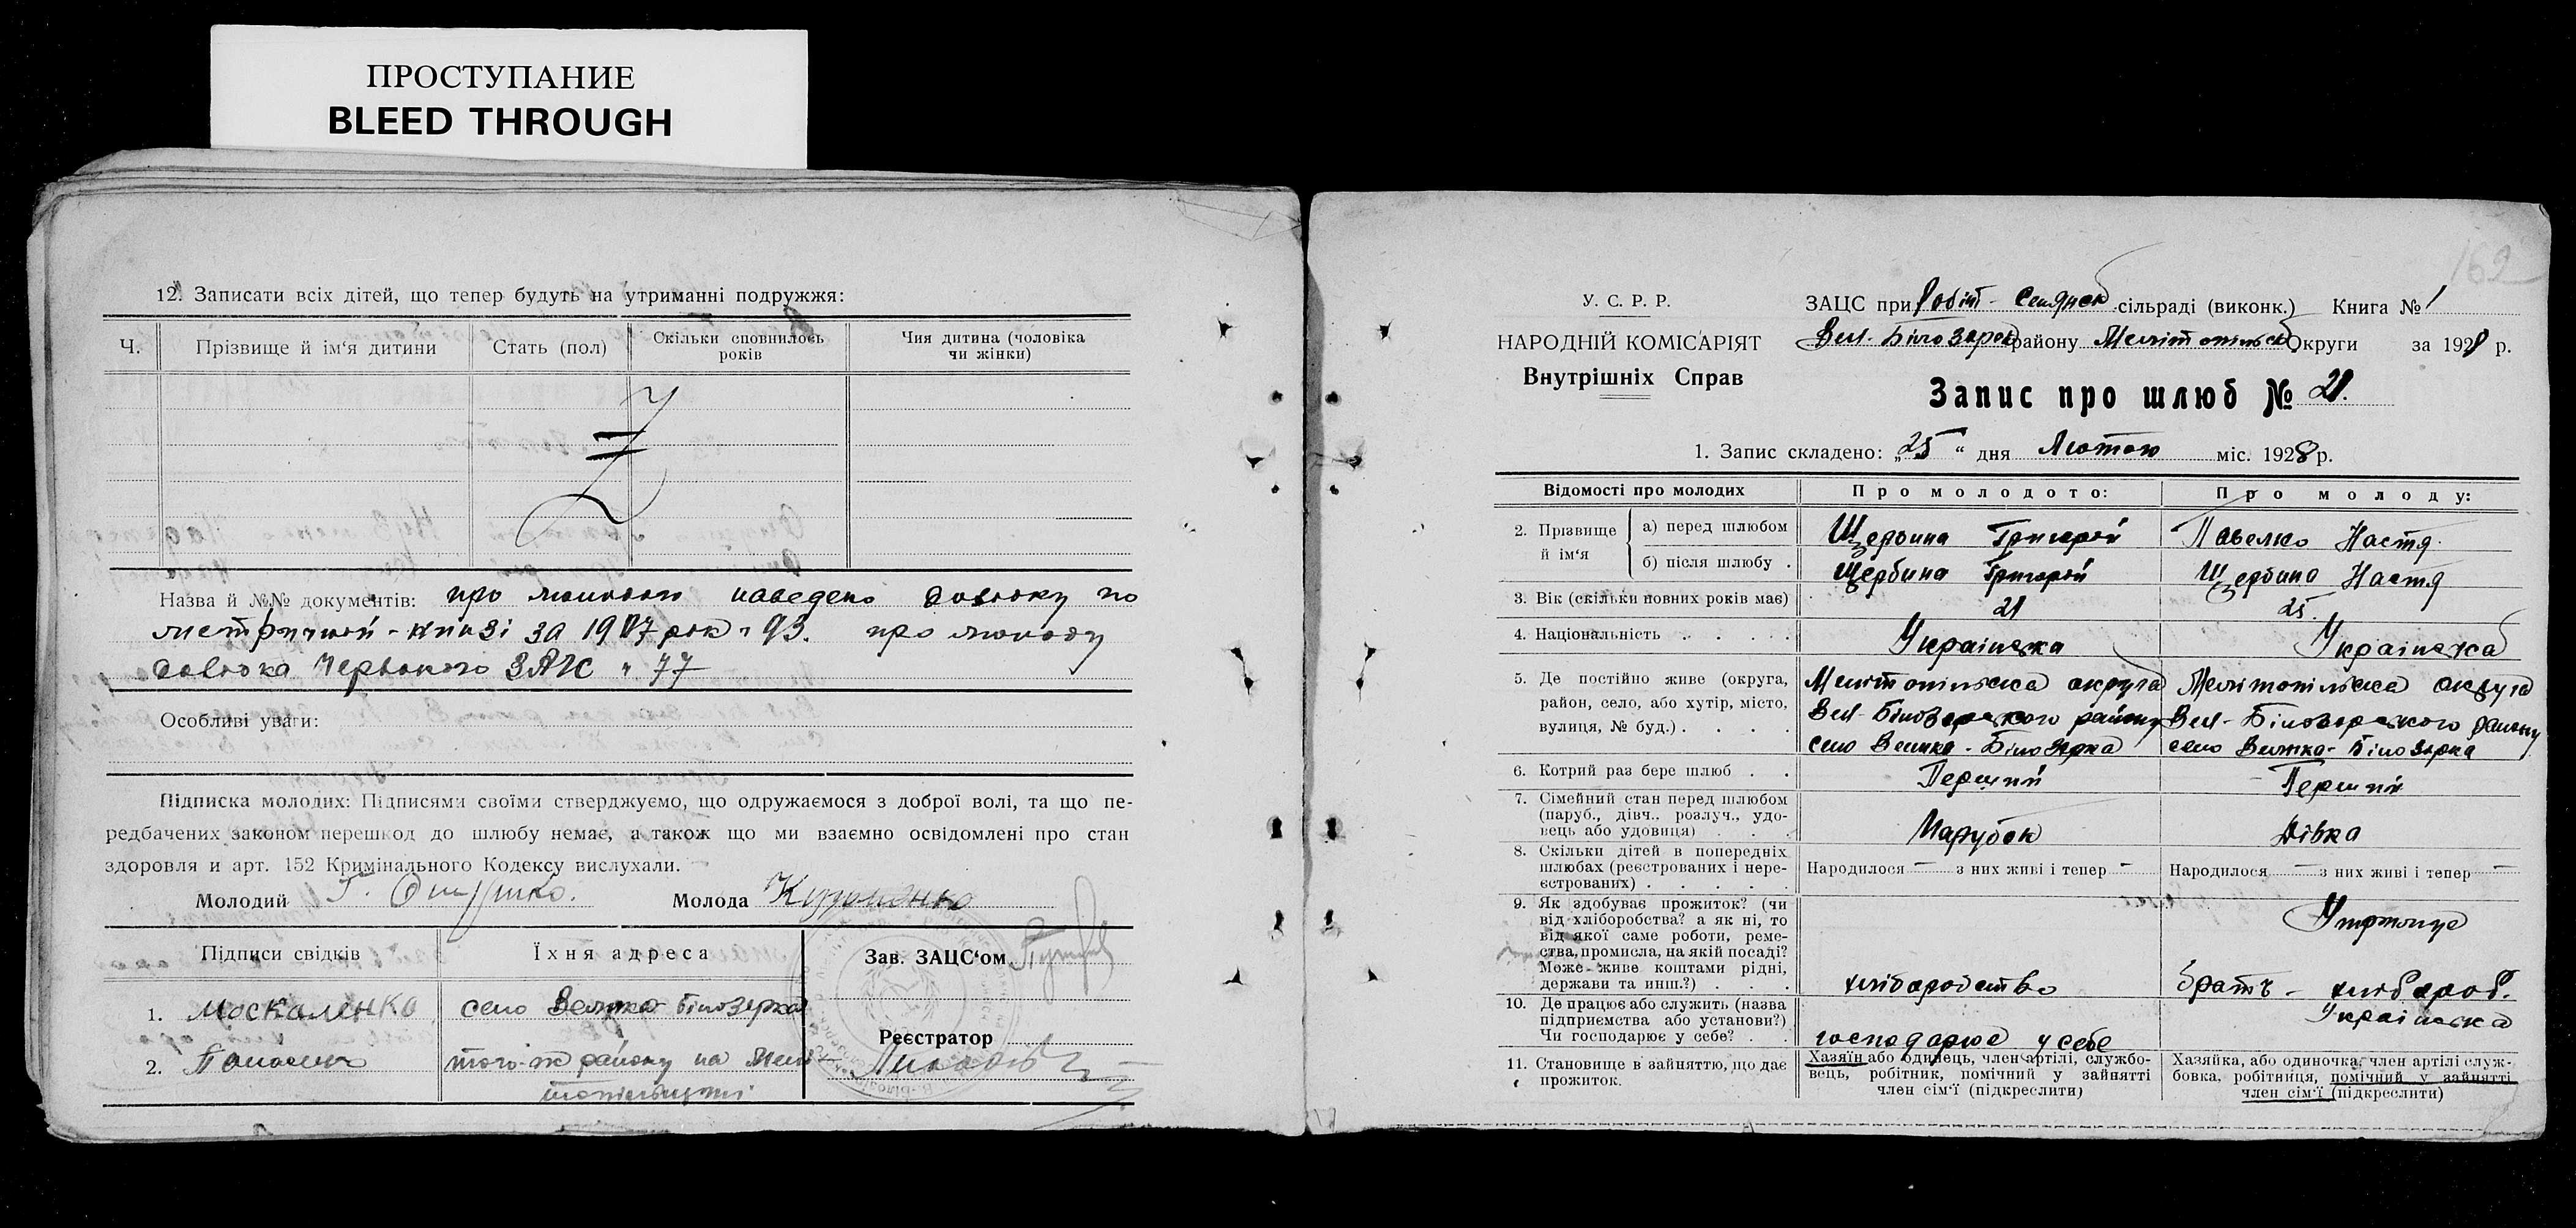 ПРОСТУПАНИЕ
BLEED THROUGH
12. Записати всіх дітей, що тепер будуть на утриманні подружжя:
Ч. Прізвище й ім‘я дитини Стать (пол) Скільки сповнилось років Чия дитина (чоловіка чи жінки)
Z
Назва й №№ документів: про молодого наведено довідку по
метричній-книзі за 1907 рок 93. про молоду
довідка Червоного ЗАГС 77
Особливі уваги:
Підписка молодих: Підписями своїми стверджуємо, що одружаємося з доброї волі, та що пе-
редбачених законом перешкод до шлюбу немає, а також що ми взаємно освідомлені про стан
здоровля и арт. 152 Кримінального Кодексу вислухали.
Молодий Г. Молода
Підписи свідків Їхня адреса Зав. ЗАЦС‘ом
1. Москаленко село Велика Білозерка
Реєстратор
2. Панасенко того-ж району на Мелі-
топільщині
162
У. С. Р. Р.
НАРОДНІЙ КОМІСАРІЯТ
Внутрішніх Справ
ЗАЦС при Робіт-Селянськ сільраді (виконк.) Книга № 1
Вел-Білозерск району Мелітопільськ Округи за 1928 р.
Запис про шлюб № 21.
1. Запис складено: „25“ дня Лютого міс. 1928 р.
Відомості про молодих Про молодого: Про молоду:
2. Прізвище й ім‘я
а) перед шлюбом Щербина Григорій Павелко Настя
б) після шлюбу Щербина Григорій Щербина Настя
3. Вік (скільки повних років має) 21 25.
4. Національність Українска Українска
5. Де постійно живе (округа, Мелітопільска округа Мелітопільска округа
район, село, або хутір, місто, Вел-Білозерского району Вел-Білозерского району
вулиця, № буд.) село Велика-Білозерка село Велика-Білозерка
6. Котрий раз бере шлюб Перший Перший
7. Сімейний стан перед шлюбом
(паруб., дівч., розлуч., удо-
вець або удовиця) Парубок Дівка
8. Скільки дітей в попередніх
шлюбах (реєстрованих і нере-
єстрованих) Народилося — з них живі і тепер — Народилося — з них живі і тепер —
9. Як здобуває прожиток? (чи
від хліборобства? а як ні, то
від якої саме роботи, реме-
ства, промисла, на якій посаді?
Може живе коштами рідні,
держави та инш.?) хліборобство братъ - хлібороб.
Українска
10. Де працює або служить (назва
підприємства або установи?)
Чи господарює у себе? господарює у себе
11. Становище в зайняттю, що дає
прожиток.
Хазяїн або одинець, член артілі, службо-
вець, робітник, помічний у зайнятті
член сім‘ї (підкреслити)
Хазяйка, або одиночка, член артілі служ-
бовка, робітниця, помічний у зайнятті
член сім‘ї (підкреслити)